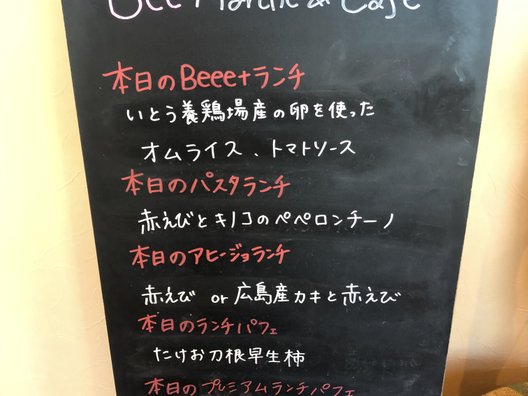 Bee Marche & Cafe
本日のBeee+ランチ
いとう養鶏場産の卵を使った
オムライス、トマトソース
本日のパスタランチ
赤えびとキノコのペペロンチーノ
本日のアヒージョランチ
赤えび or 広島産カキと赤えび
本日のランチパフェ
たけお刀根早生柿
本日のプレミアムランチパフェ